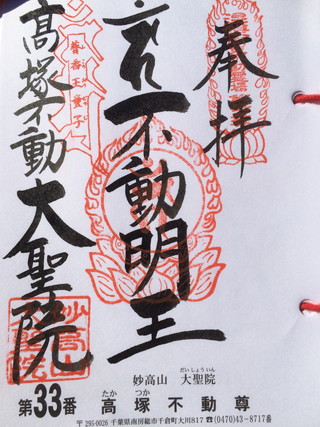 奉拝
不動明王
高塚不動大聖院
妙高山 大聖院
だいしょういん
第33番 高塚不動尊
たか つか
〒295-0026 千葉県南房総市千倉町大川817 ☎(0470)43-8717番